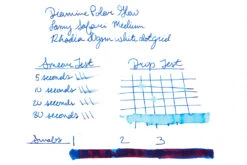 Diamine Polar Glow
Lamy Safari Medium
Rhodia 80gsm white dot grid
Smear Test Drip Test
5 seconds
10 seconds
20 seconds
30 seconds
Swabs 1 2 3